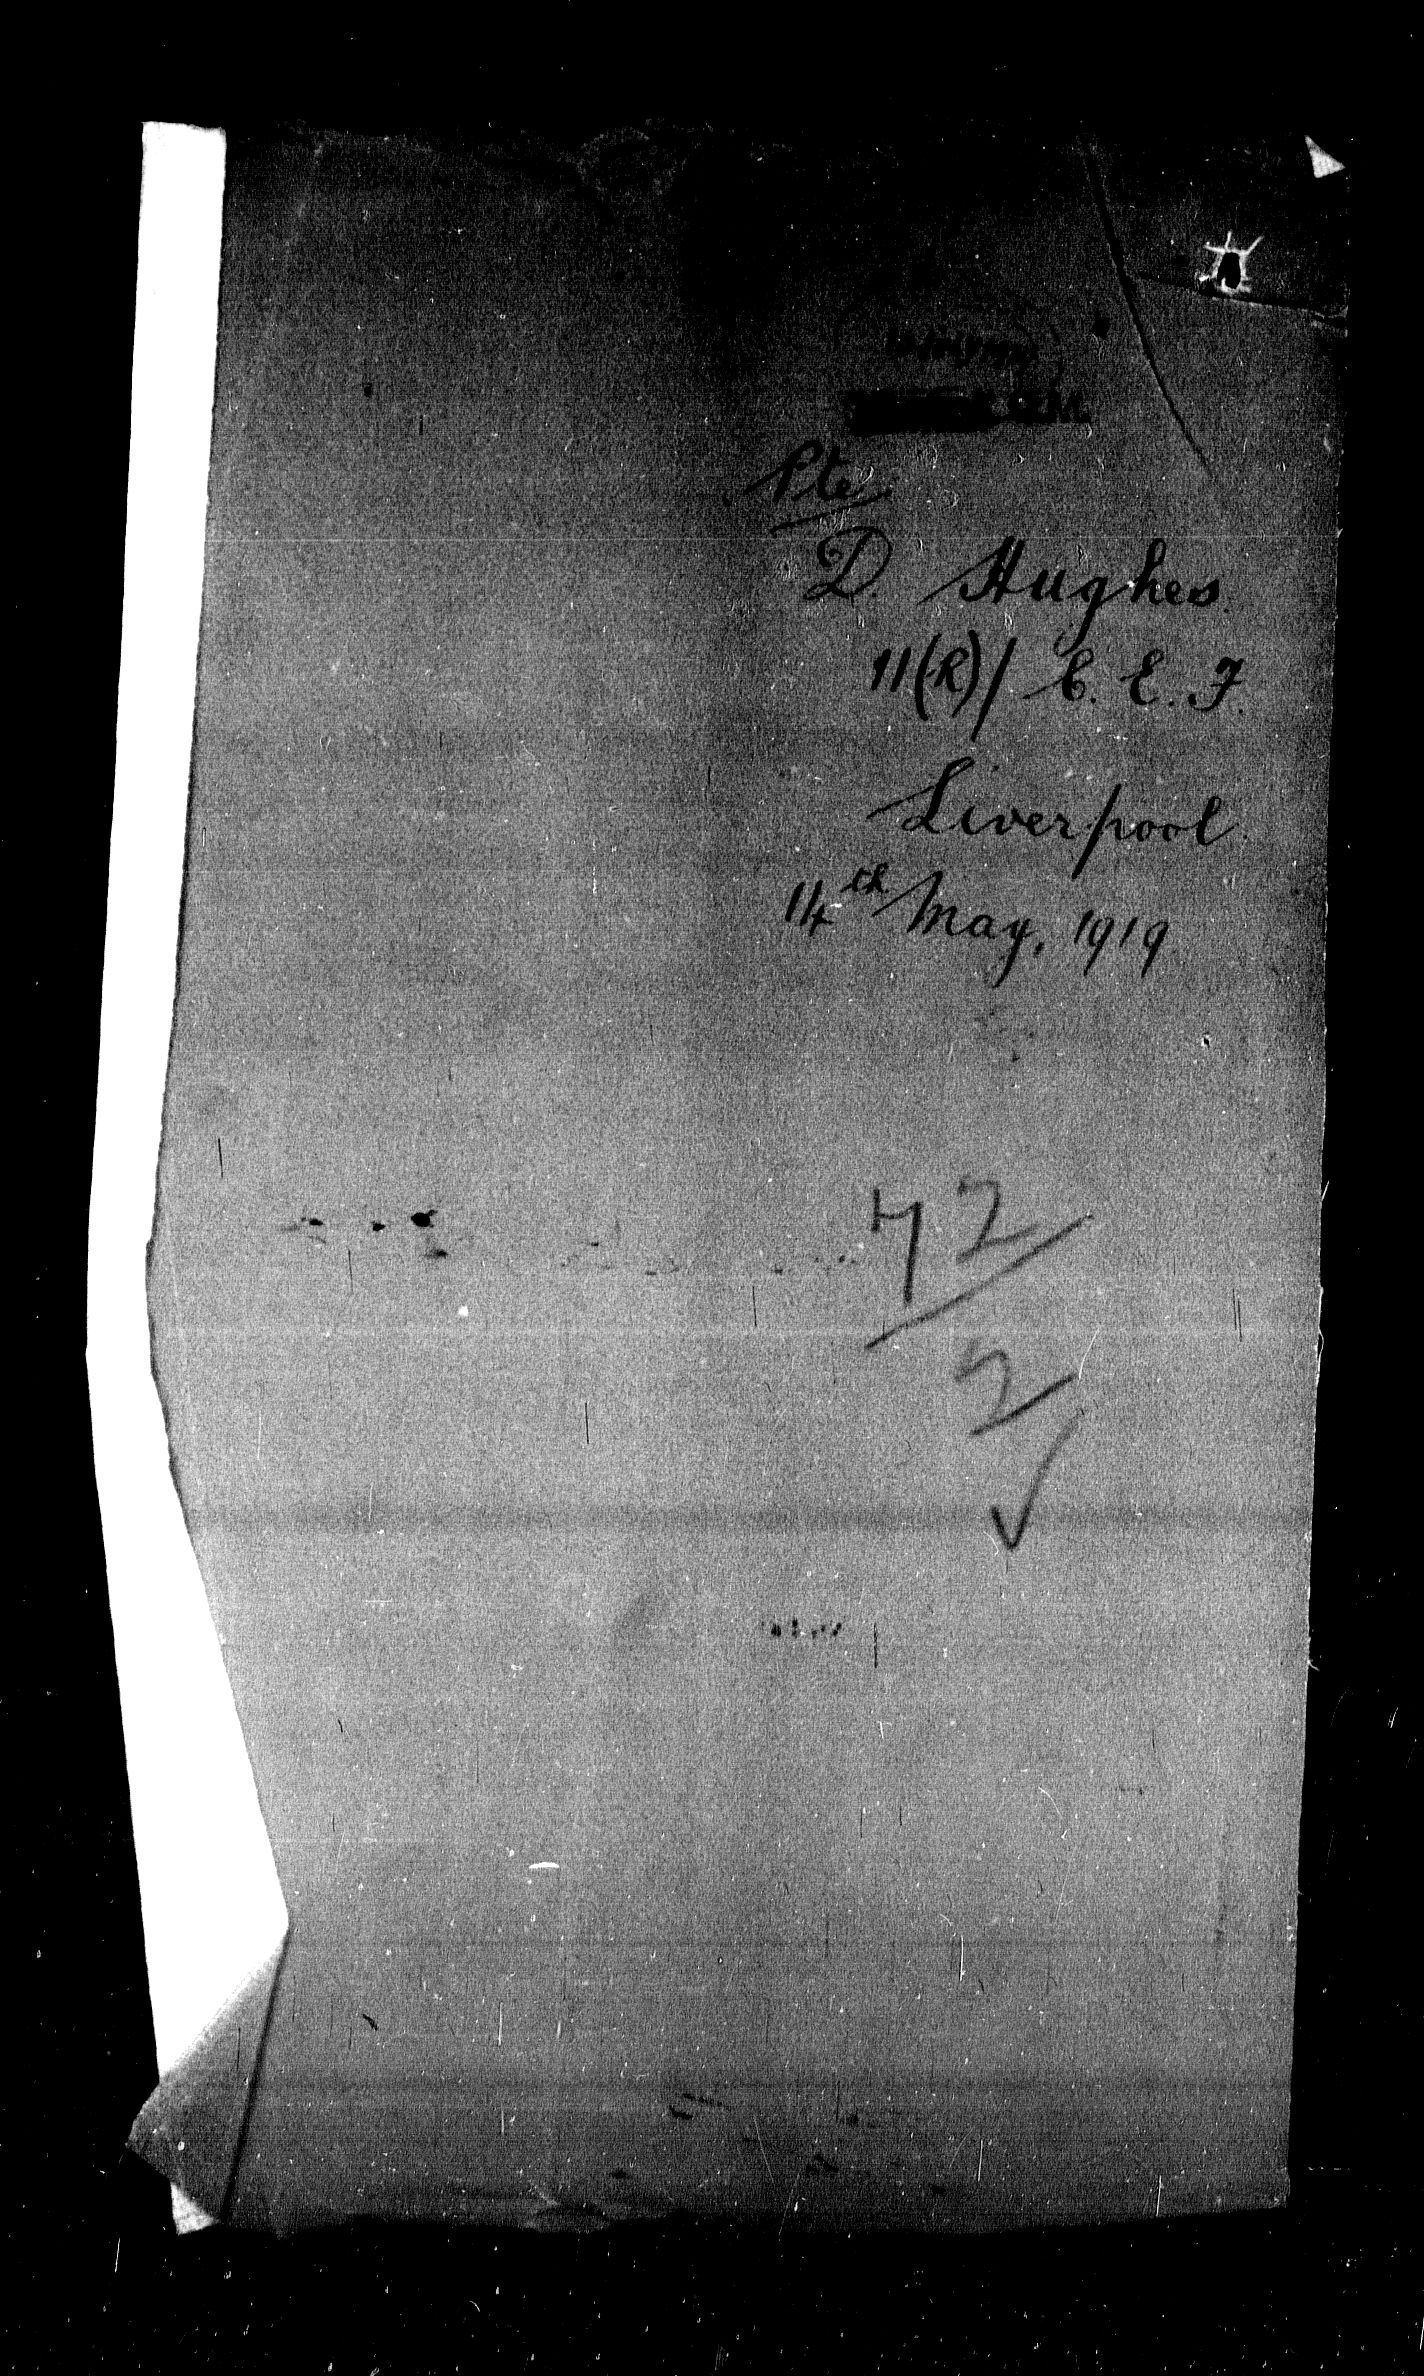 Pte
D. Hughes.
11(R)/ C. E. F.
Liverpool.
14th May, 1919
72
2